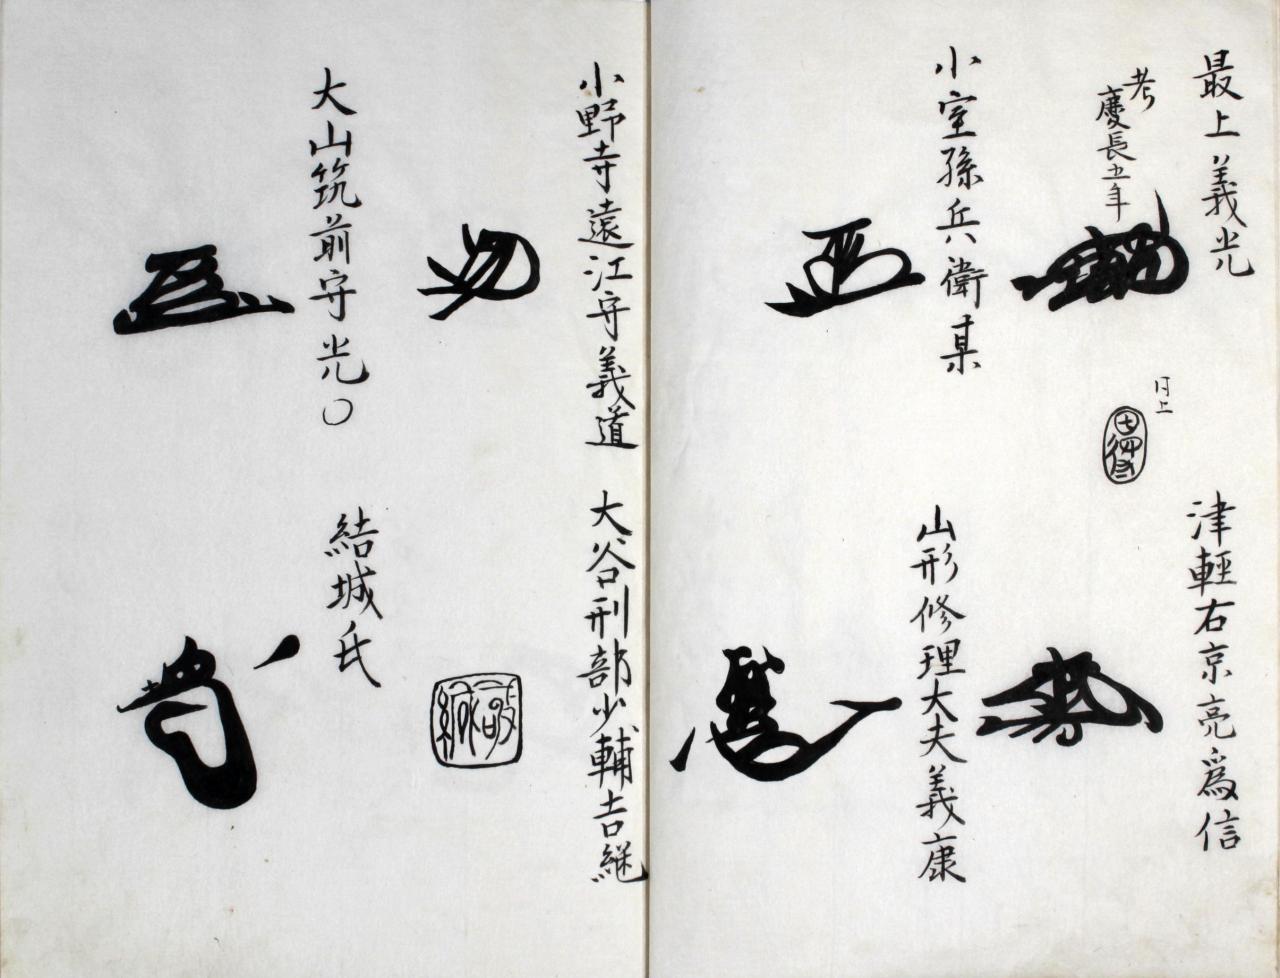 最上義光
考
慶長五年
同上
津輕右京亮爲信
小室孫兵衛某
山形修理大夫義康
小野寺遠江守義道
大谷刑部少輔吉継
大山筑前守光〇
結城氏